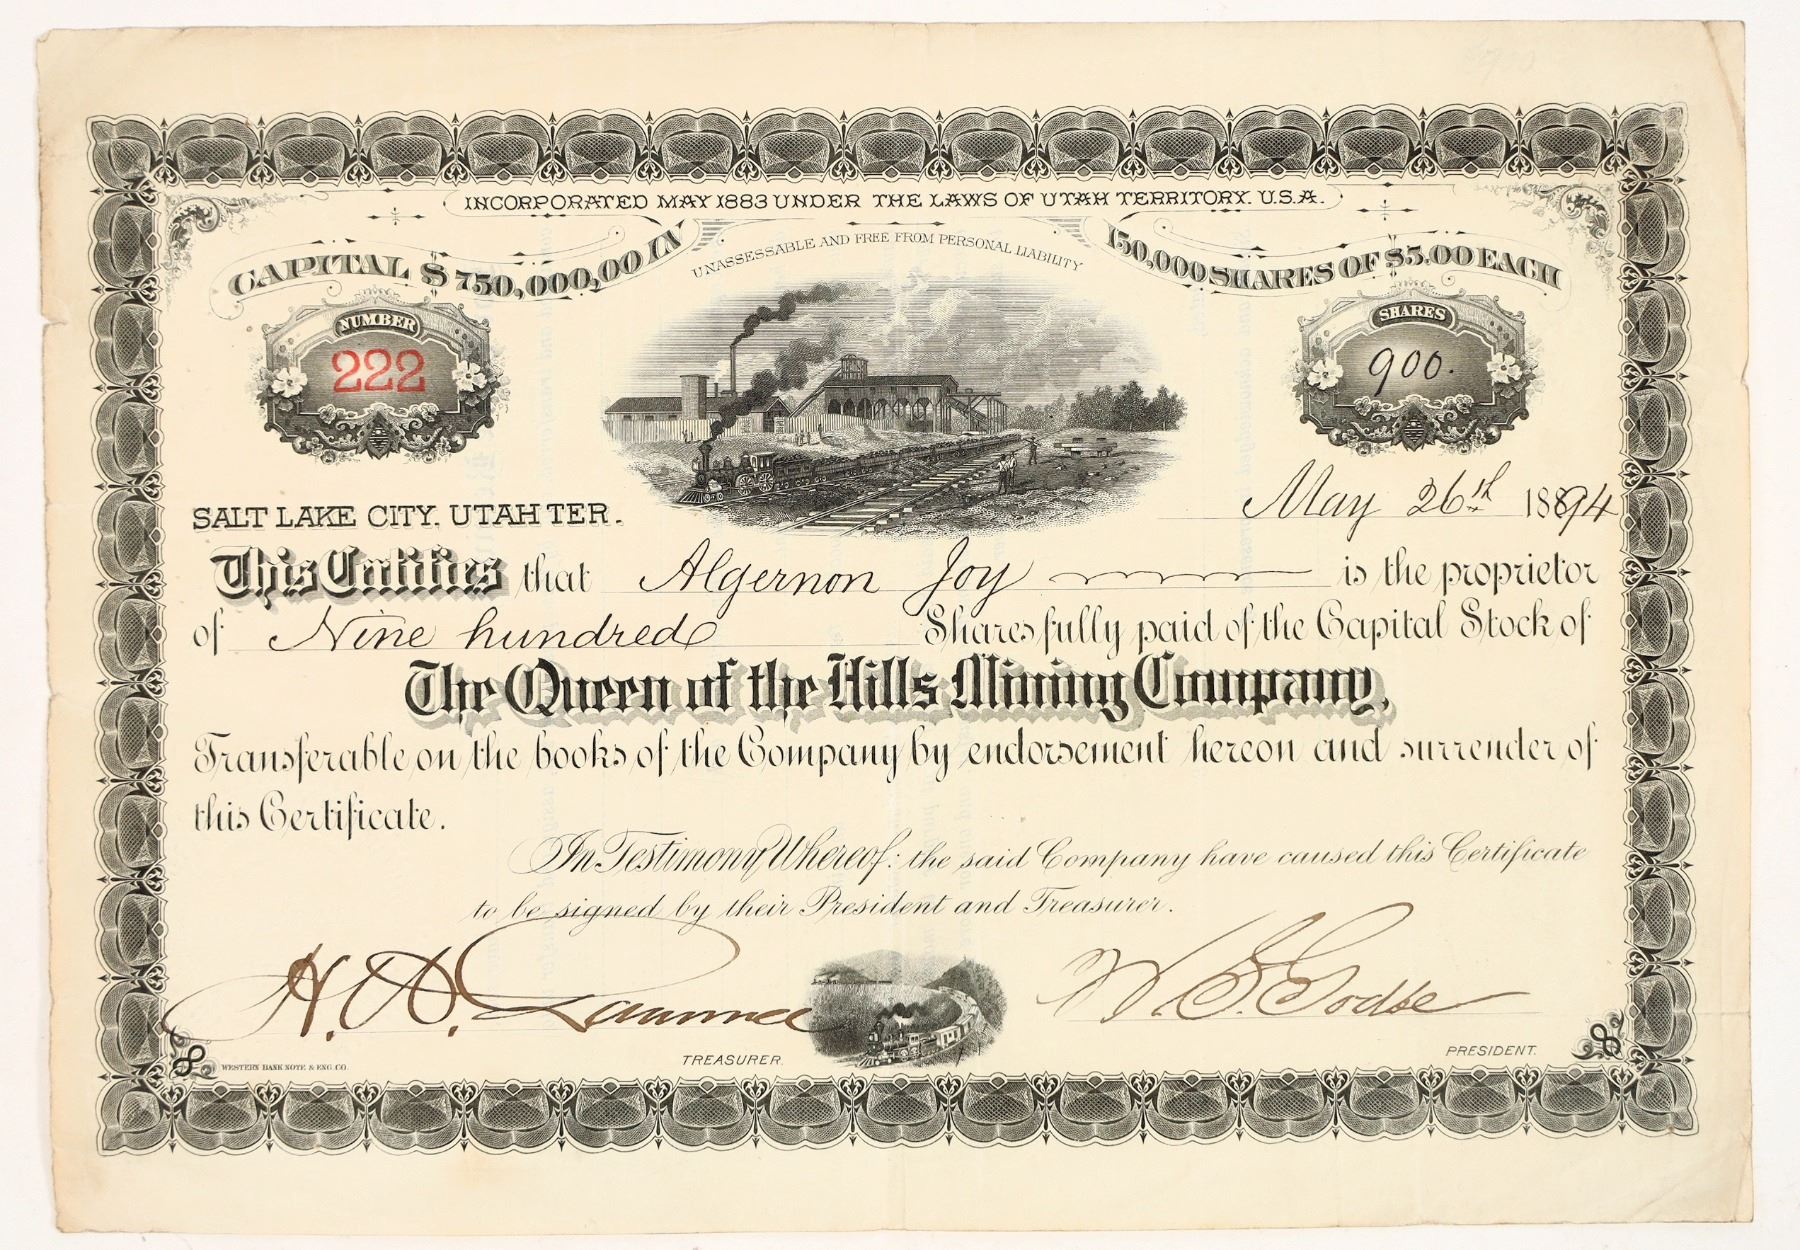 INCORPORATED MAY 1883 UNDER THE LAWS OF UTAH TERRITORY. U.S.A.
CAPITAL $750,000,00 IN 150,000 SHARES OF $5.00 EACH
UNASSESSABLE AND FREE FROM PERSONAL LIABILITY
NUMBER
222
SHARES
900.
SALT LAKE CITY, UTAH TER. May 26th 1894
This Certifies that Algernon Joy is the proprietor
of Nine hundred Shares fully paid of the Capital Stock of
The Queen of the Hills Mining Company,
Transferable on the books of the Company by endorsement hereon and surrender of
this Certificate.
In Testimony Whereof: the said Company have caused this Certificate
to be signed by their President and Treasurer.
H. A. W. S. Godbe
TREASURER. PRESIDENT.
WESTERN BANK NOTE & ENG. CO.